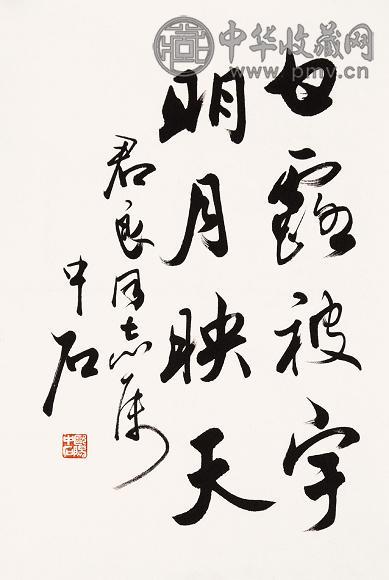 中华收藏网
www.pmv.cn
甘露被宇
明月映天
君良同志属
中石
歐陽中石